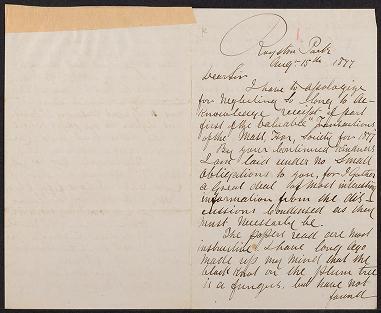 Royston Park
Augt 15th 1877
Dear Sir
I have to apologize
for neglecting so long to ac-
knowledge receipt of part
first of the valuable Transactions
of the Mass. Hor. Society for 1877
By your continued kindness
I am laid under no small
obligations to you, for I gather
a great deal of most interesting
information from the dis-
cussions condensed as they
must necessarily be.
The papers read are most
instructive. I have long ago
made up my mind that the
black knot on the plum tree
is a fungus, but have not
found